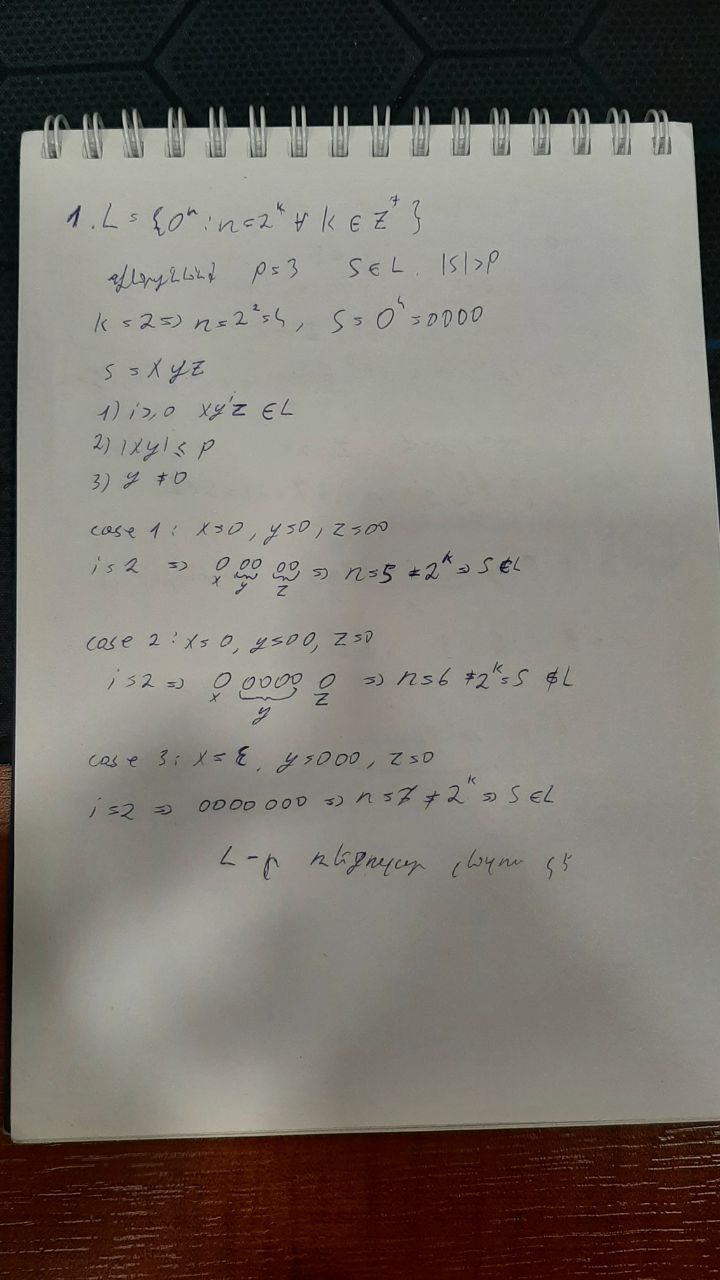 1. L = {0ⁿ : n = 2ᵏ ∀ k ∈ Z⁺}
p = 3 S ∈ L. |S| > p
k = 2 => n = 2² = 4, S = 0⁴ = 0000
S = xyz
1) i ≥ 0 xyⁱz ∈ L
2) |xy| ≤ p
3) y ≠ 0
case 1: x = 0, y = 0, z = 00
i = 2 => 0 00 00 => n = 5 ≠ 2ᵏ => S ∉ L
x y z
case 2: x = 0, y = 00, z = 0
i = 2 => 0 0000 0 => n = 6 ≠ 2ᵏ = S ∉ L
x y z
case 3: x = ε, y = 000, z = 0
i = 2 => 0000 000 => n = 7 ≠ 2ᵏ => S ∈ L
L-ը